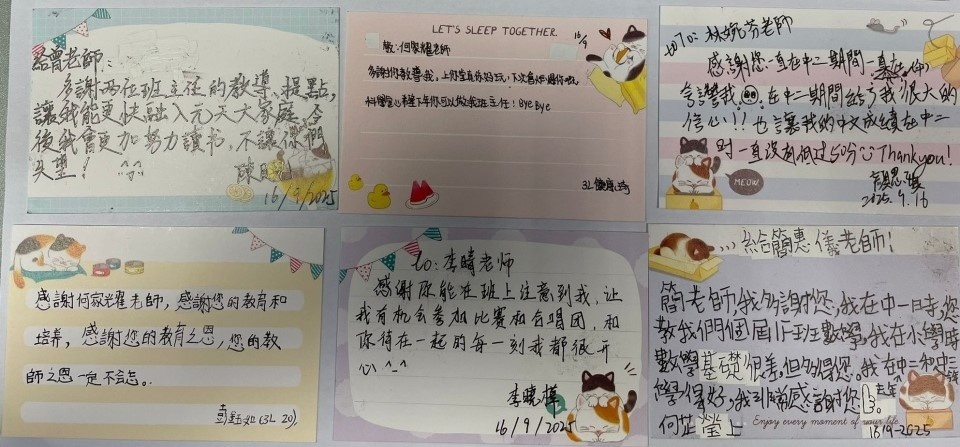 給曾老師:
多謝兩位班主任的教導、提點,
讓我能更快融入元天大家庭,今
後我會更加努力讀书,不讓你們
失望! ^-^
陳
16/9/2025
LET'S SLEEP TOGETHER.
16/9
致:何家耀老師
多謝你教導我,上你堂真係好玩,
希望下年你可以做我班主任!Bye Bye
3L
To: 林婉芬老師
感謝您一直在中二期間一直在
夸讚我 在中二期間給了我很大的
信心!! 也讓我的中文成績在中二
时一直沒有低过50分 Thank you!
2025.9.16
MEOW
感謝何家耀老師,感謝您的教育和
培养,感謝您的教育之恩,您的教
师之恩一定不忘。
(3L 20)
to:李晴老师
感谢你能在班上注意到我,让
我有机会参加比賽和合唱团,和
你待在一起的每一刻我都很开
心 ^-^
李曉樺
16/9/2025
...給簡惠儀老師!
簡老師,我多謝您,我在中一時,您
教我們個屆1F班數學,我在小學時
數學基礎很差,但多得您,我在中二和中三
學得好,我到隔感謝您!
何芷瑩上
Enjoy every moment of your life.
16-9-2025